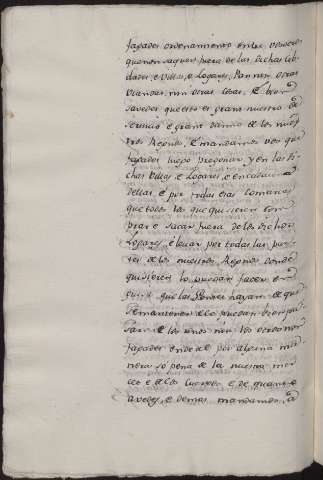 fagades ordenamiento entre vosotros
que non saquen fuera de las dichas Cib
dades, e Villas, e Logares, Pan nin otras
Viandas, nin otras cosas. E bien
savedes que esto es grant nuestro de
servicio e grant danno de los nues
tros Regnos, E mandamos vos que
fagades luego pregonar, y en las di
chas Villas, e Logares, e en cada una
dellas, e por todas esas comarcas
que todos los que quisieren com
prar e sacar fuera de los dichos
Logares, e levar por todas las par
tes de los nuestros Regnos donde
quisieren lo puedan facer, e
que las gentes hayan de que
se mantener e lo puedan bien pa
sar. E los unos nin los otros non
fagades ende al por alguna ma
nera so pena de la nuestra mer
ced e de los cuerpos e de quanto
avedes, e demas mandamos a